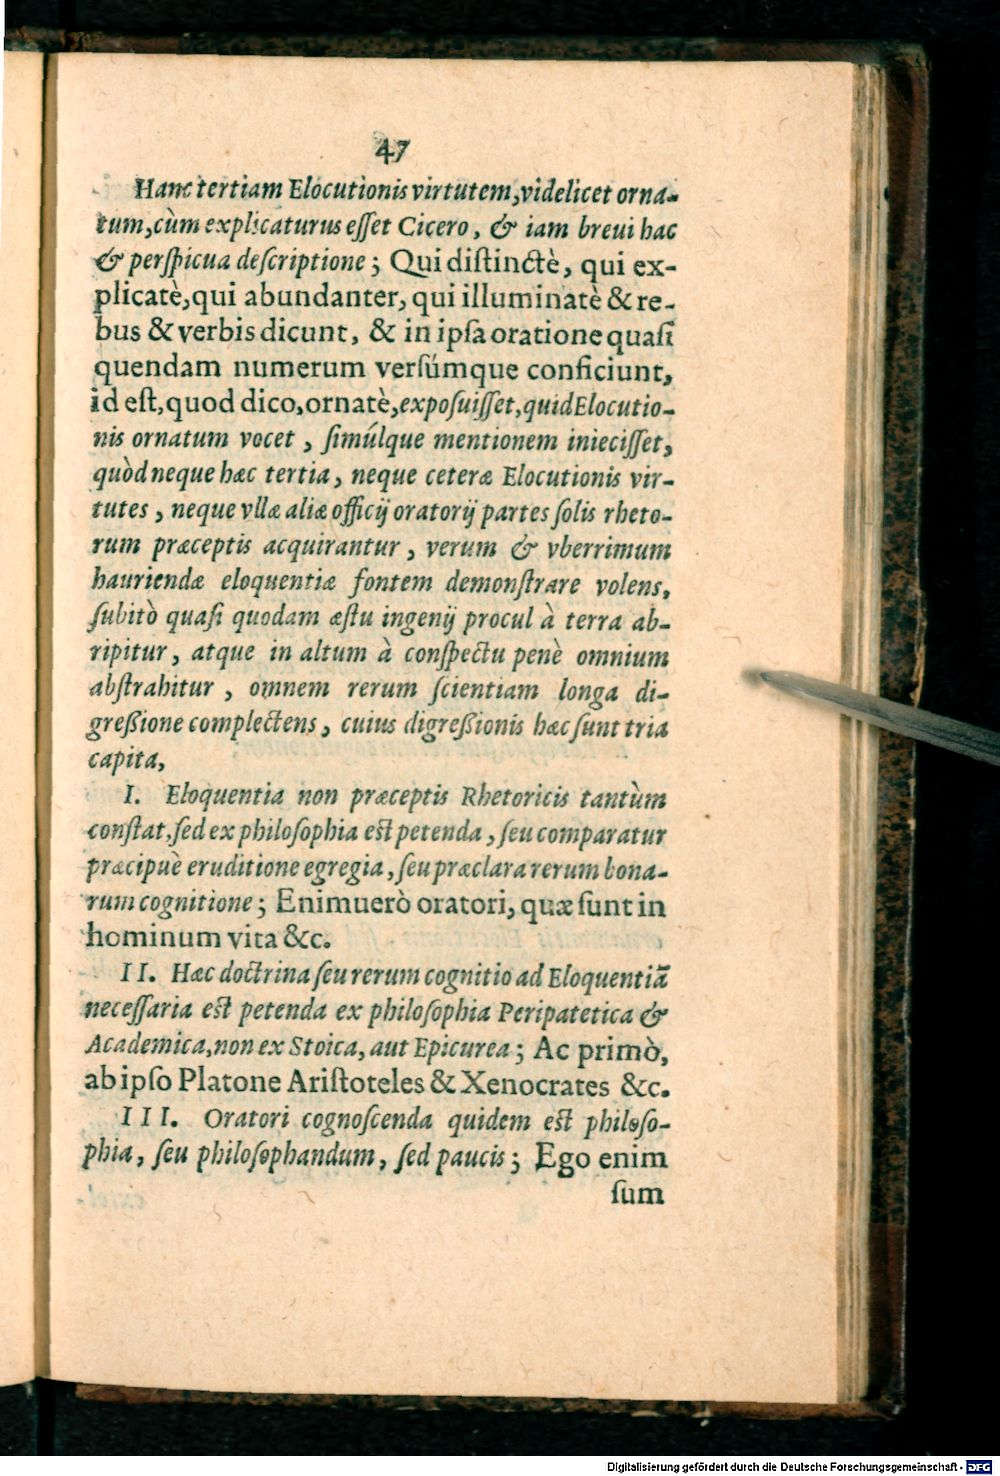 47
Hanc tertiam Elocutionis virtutem, videlicet orna-
tum, cùm explicaturus eſſet Cicero, & iam breui hac
& perſpicua deſcriptione; Qui diſtinctè, qui ex-
plicatè, qui abundanter, qui illuminatè & re-
bus & verbis dicunt, & in ipſa oratione quaſi
quendam numerum verſúmque conficiunt,
id eſt, quod dico, ornatè, expoſuiſſet, quid Elocutio-
nis ornatum vocet, ſimúlque mentionem inieciſſet,
quòd neque hæc tertia, neque ceteræ Elocutionis vir-
tutes, neque vllæ aliæ officij oratorij partes ſolis rheto-
rum præceptis acquirantur, verum & vberrimum
hauriendæ eloquentiæ fontem demonſtrare volens,
ſubitò quaſi quodam æſtu ingenij procul à terra ab-
ripitur, atque in altum à conſpectu penè omnium
abſtrahitur, omnem rerum ſcientiam longa di-
greßione complectens, cuius digreßionis hæc ſunt tria
capita,
I. Eloquentia non præceptis Rhetoricis tantùm
conſtat, ſed ex philoſophia eſt petenda, ſeu comparatur
præcipuè eruditione egregia, ſeu præclara rerum bona-
rum cognitione; Enimuerò oratori, quæ ſunt in
hominum vita &c.
II. Hæc doctrina ſeu rerum cognitio ad Eloquentiã
neceſſaria eſt petenda ex philoſophia Peripatetica &
Academica, non ex Stoica, aut Epicurea; Ac primò,
ab ipſo Platone Ariſtoteles & Xenocrates &c.
III. Oratori cognoſcenda quidem eſt philoſo-
phia, ſeu philoſophandum, ſed paucis; Ego enim
ſum
Digitalisierung gefördert durch die Deutsche Forschungsgemeinschaft - DFG